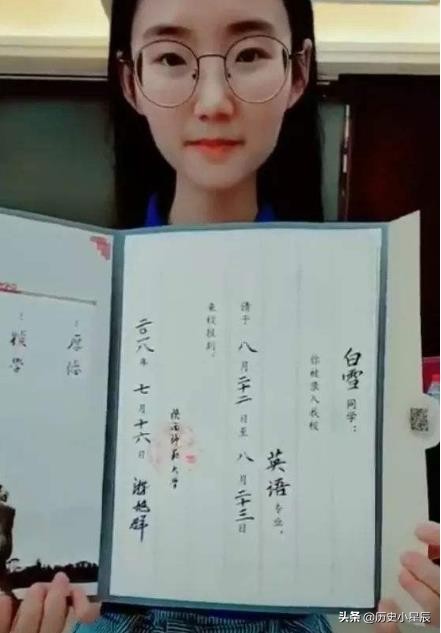 白雪同学：
你被录入我校
英语专业。
请于八月二十二日至八月二十三日
来校报到。
陕西师范大学
游旭群
二〇一八年七月十六日
厚德
积学
头条@历史小星辰